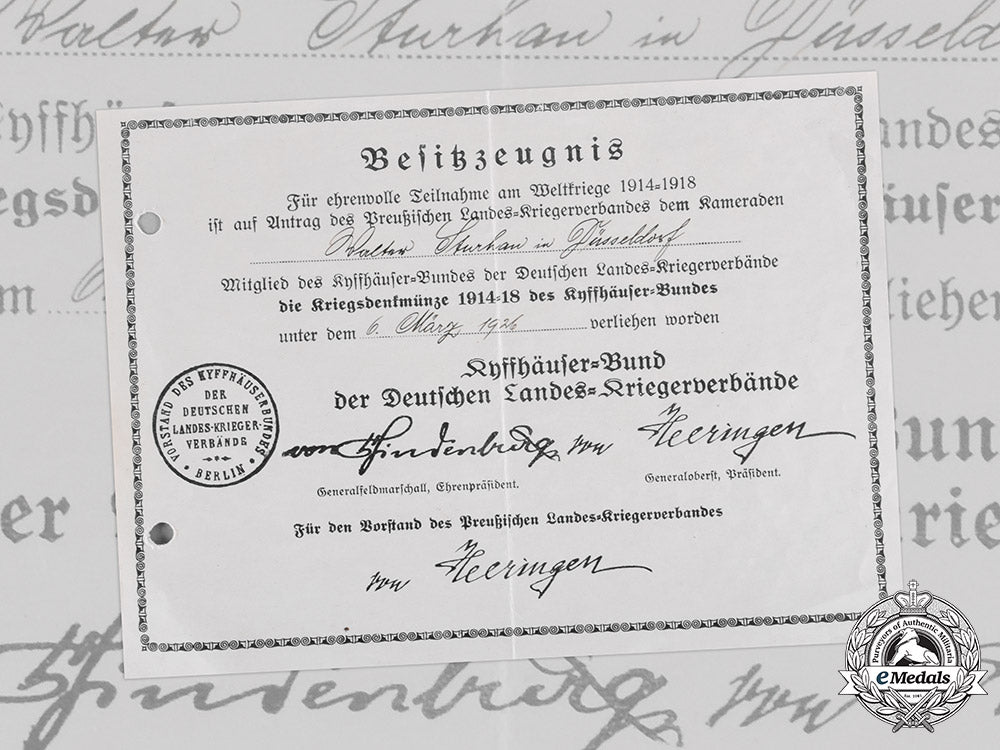 Walter Sturhan in Düsseld
Kyffh
andes
egsd
äuser
em
liehen
Bun
er
rie
Hindenburg von
Besitzzeugnis
Für ehrenvolle Teilnahme am Weltkriege 1914=1918
ist auf Antrag des Preußischen Landes=Kriegerverbandes dem Kameraden
Walter Sturhan in Düsseldorf
Mitglied des Kyffhäuser=Bundes der Deutschen Landes=Kriegerverbände
die Kriegsdenkmünze 1914-18 des Kyffhäuser=Bundes
unter dem 6. März 1926 verliehen worden
Kyffhäuser=Bund
der Deutschen Landes=Kriegerverbände
VORSTAND DES KYFFHÄUSERBUNDES
DER
DEUTSCHEN
LANDES-KRIEGER-
VERBÄNDE
BERLIN
von Hindenburg von Heeringen
Generalfeldmarschall, Ehrenpräsident. Generaloberst, Präsident.
Für den Vorstand des Preußischen Landes=Kriegerverbandes
von Heeringen
Purveyors of Authentic Militaria
eMedals